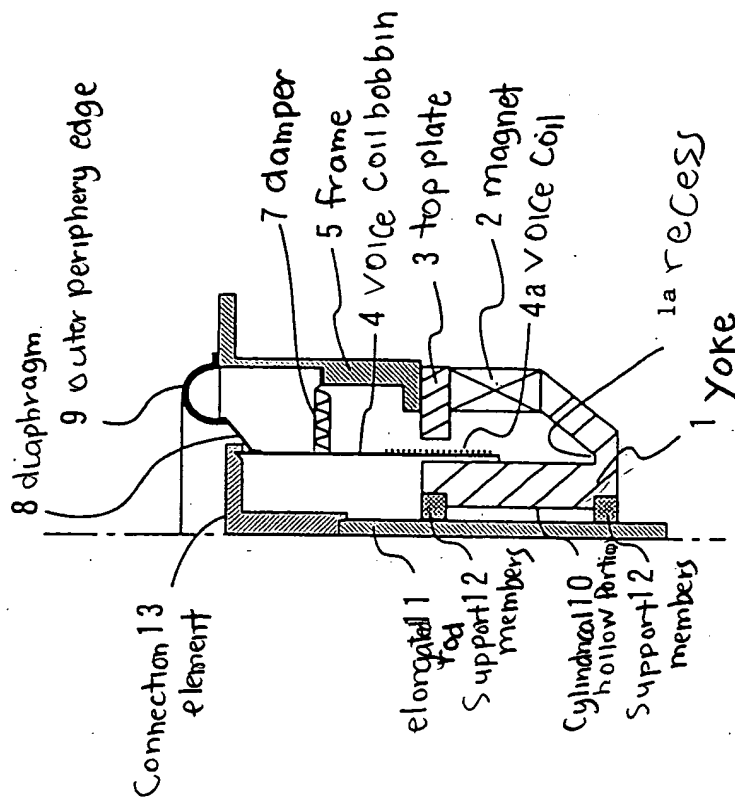 8 diaphragm
9 outer periphery edge
7 damper
5 frame
4 voice coil bobbin
3 top plate
2 magnet
4a voice coil
1a recess
1 Yoke
Connection 13
element
elongated 11
rod
Support 12
members
Cylindrical 10
hollow portion
Support 12
members